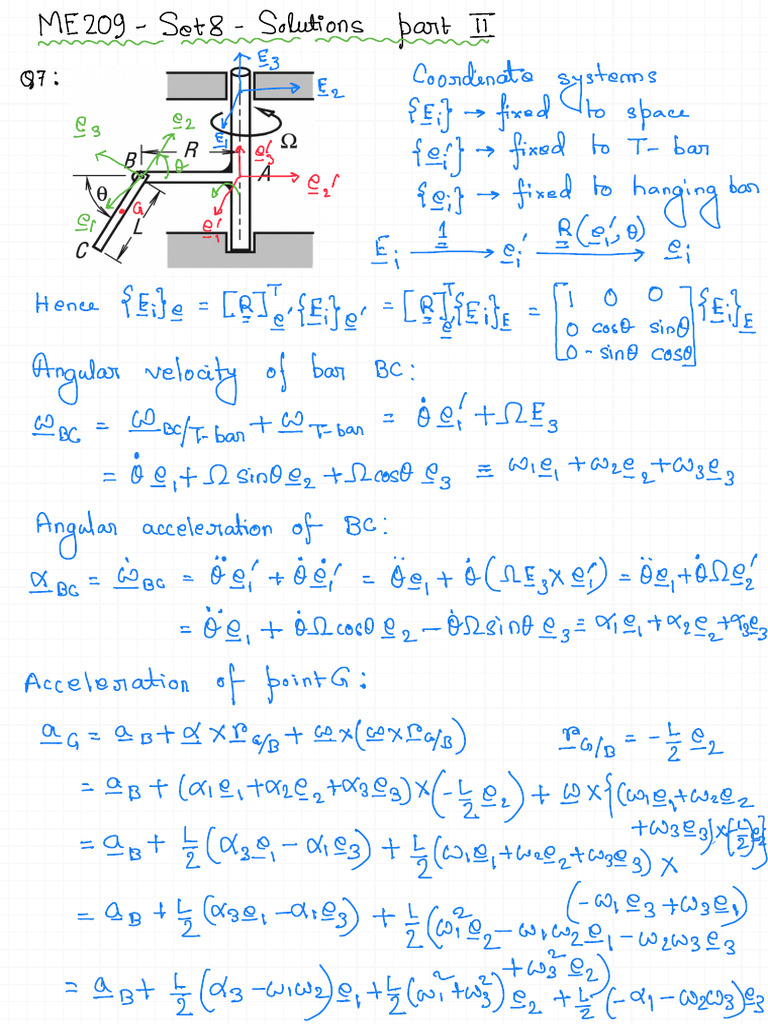 ME209 - Set 8 - Solutions part II
Q7:
E3
E2
E1
Ω
e3
e2
B
R
θ
e3'
A
e2'
e1'
θ
e1
G
L
C
Coordinate systems
{Ei} → fixed to space
{ei'} → fixed to T-bar
{ei} → fixed to hanging bar
Ei —1→ ei' —R(e1', θ)→ ei
Hence {Ei}e = [R]ᵀe' {Ei}e' = [R]ᵀe' {Ei}E = [1 0 0; 0 cosθ sinθ; 0 -sinθ cosθ] {Ei}E
Angular velocity of bar BC:
ωBC = ωBC/T-bar + ωT-bar = θ̇ e1' + ΩE3
= θ̇ e1 + Ω sinθ e2 + Ω cosθ e3 ≡ ω1e1 + ω2e2 + ω3e3
Angular acceleration of BC:
αBC = ω̇BC = θ̈ e1' + θ̇ ė1' = θ̈ e1 + θ̇ (ΩE3 × e1') = θ̈ e1 + θ̇Ω e2'
= θ̈ e1 + θ̇Ω cosθ e2 − θ̇Ω sinθ e3 ≡ α1e1 + α2e2 + α3e3
Acceleration of point G:
aG = aB + α × rG/B + ω × (ω × rG/B) rG/B = −L/2 e2
= aB + (α1e1 + α2e2 + α3e3) × (−L/2 e2) + ω × {(ω1e1 + ω2e2 + ω3e3) × (−L/2) e2}
= aB + L/2 (α3e1 − α1e3) + L/2 (ω1e1 + ω2e2 + ω3e3) × (−ω1e3 + ω3e1)
= aB + L/2 (α3e1 − α1e3) + L/2 (ω1² e2 − ω1ω2e1 − ω2ω3e3 + ω3² e2)
= aB + L/2 (α3 − ω1ω2) e1 + L/2 (ω1² + ω3²) e2 + L/2 (−α1 − ω2ω3) e3